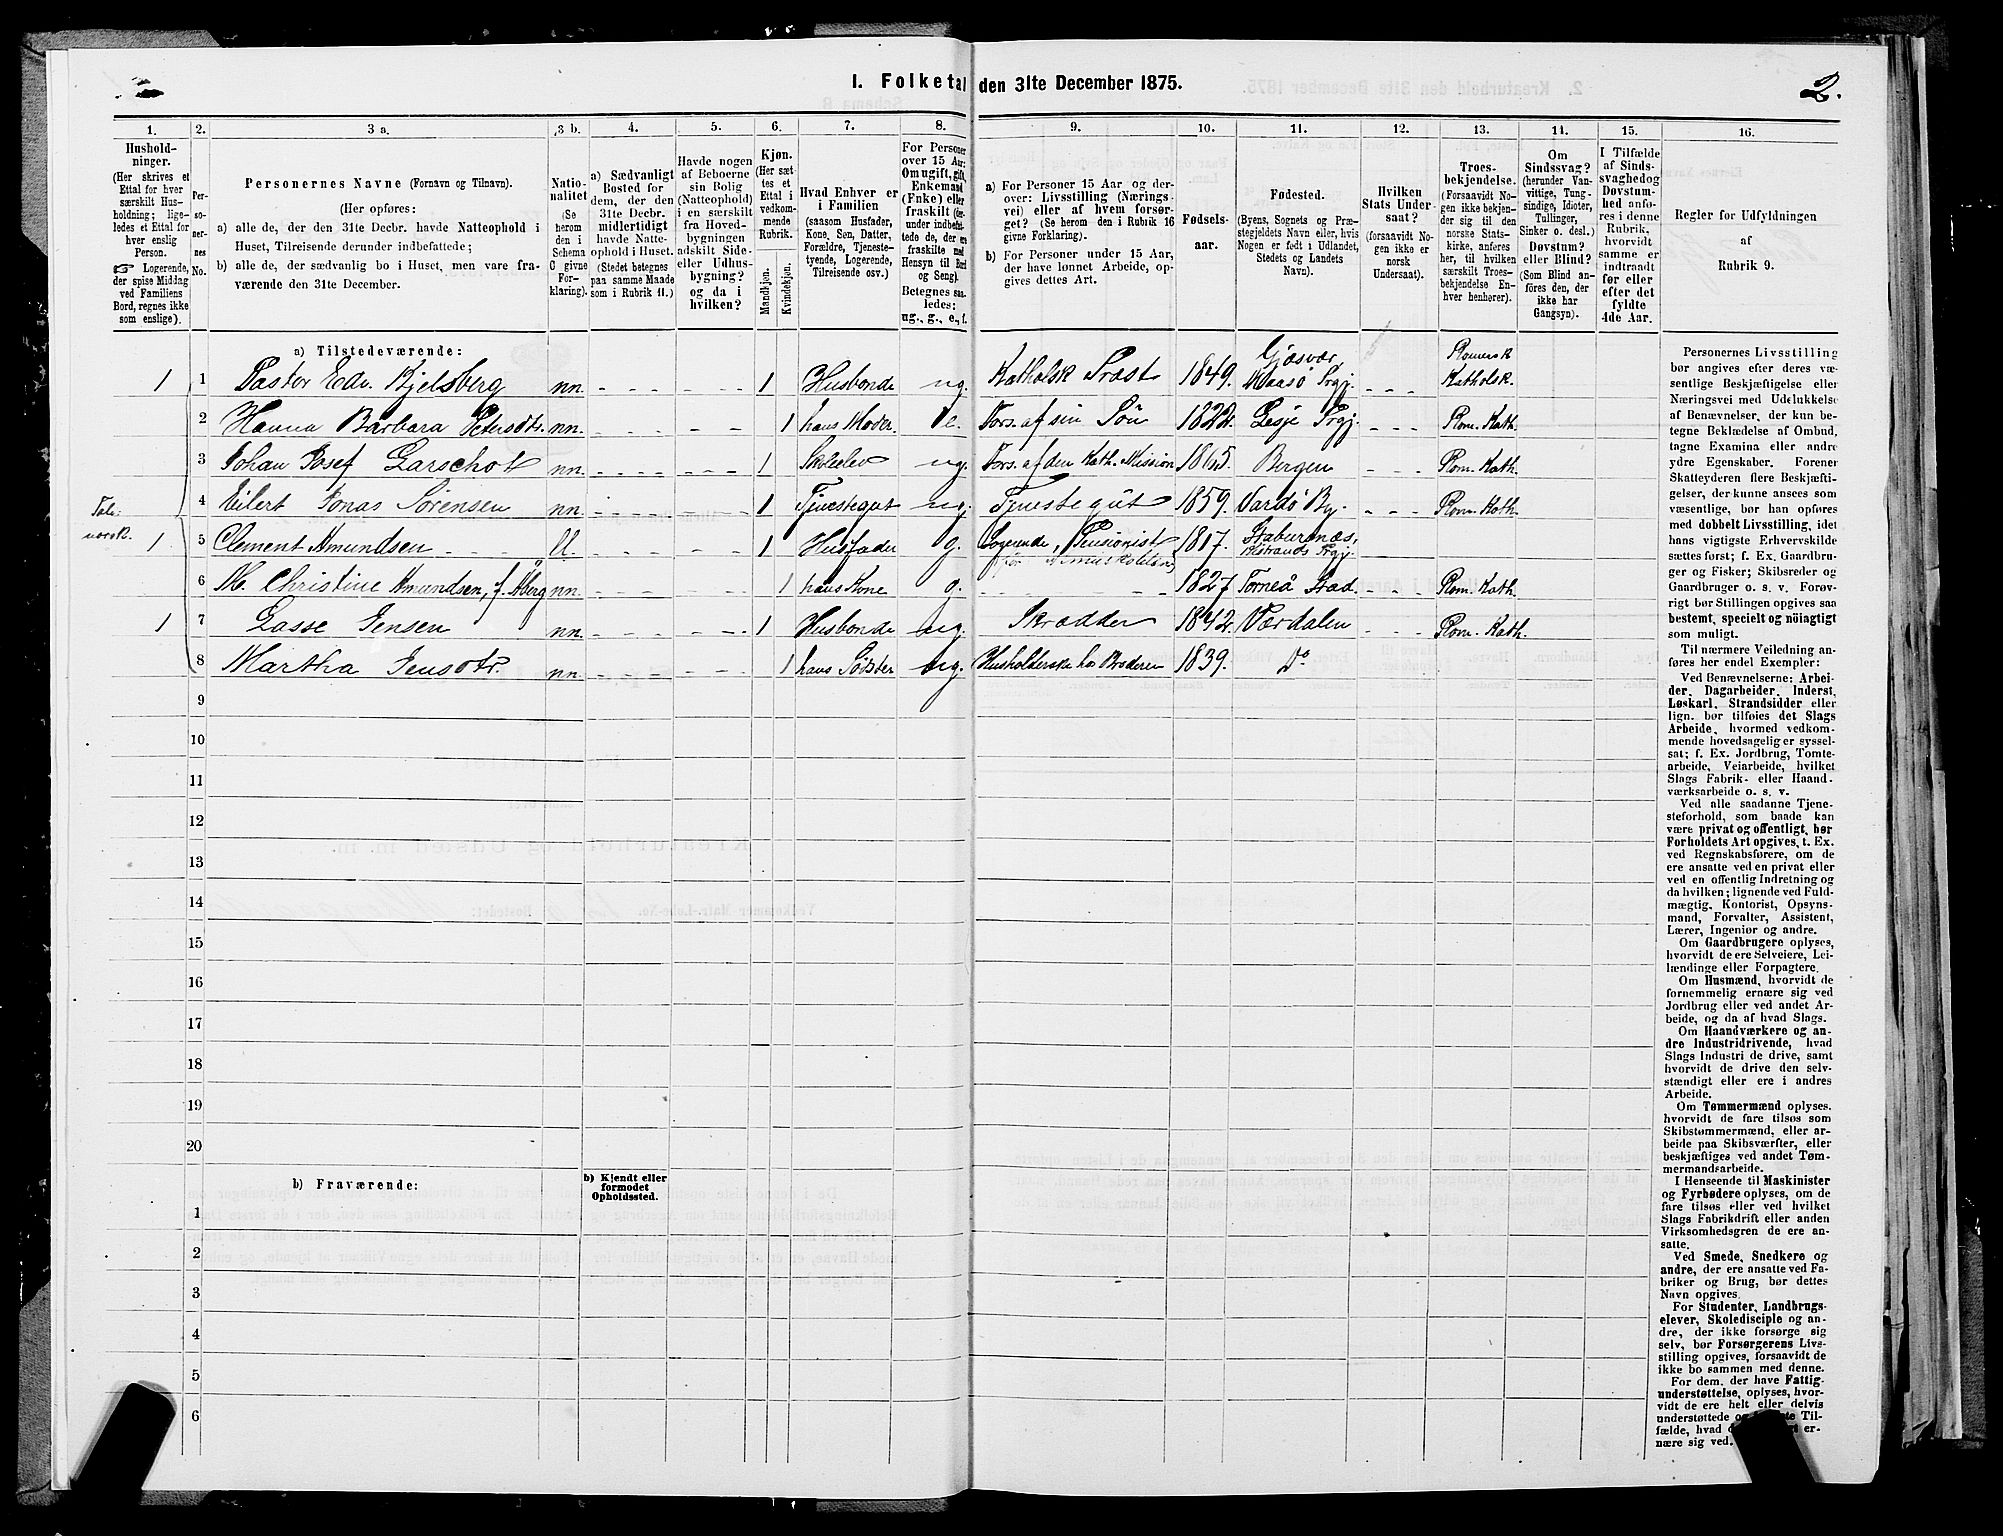 I. Folketal den 31te December 1875.
2.
1. 2. 3 a. 3 b. 4. 5. 6. 7. 8. 9. 10. 11. 12. 13. 14. 15. 16.
Hushold-
ninger.
(Her skrives et
Ettal for hver
særskilt Hus-
holdning; lige-
ledes et Ettal for
hver enslig
Person.
☞ Logerende,
der spise Middag
ved Familiens
Bord, regnes ikke
som enslige).
Per-
so-
ner-
nes
No.
Personernes Navne (Fornavn og Tilnavn).
(Her opføres:
a) alle de, der den 31te Decbr. havde Natteophold i
Huset, Tilreisende derunder indbefattede;
b) alle de, der sædvanlig bo i Huset, men vare fra-
værende den 31te December.
Natio-
nalitet
(Se
herom
den i
Schema
C givne
For-
klaring).
a) Sædvanligt
Bosted for
dem, der den
31te Decbr.
midlertidigt
havde Natte-
ophold i Huset.
(Stedet betegnes
paa samme Maade
som i Rubrik 11.)
Havde nogen
af Beboerne
sin Bolig
(Natteophold)
i en særskilt
fra Hoved-
bygningen
adskilt Side-
eller Udhus-
bygning?
og da i
hvilken?
Kjøn.
(Her sæt-
tes et
Ettal i
vedkom-
mende
Rubrik.
Mandkjøn.
Kvindekjøn.
Hvad Enhver er
i Familien
(saasom Husfader,
Kone, Søn, Datter,
Forældre, Tjeneste-
tyende, Logerende,
Tilreisende osv.)
For Personer
over 15 Aar:
Om ugift, gift,
Enkemand
(Enke) eller
fraskilt (der-
under indbefat-
tede de, der ere
fraskilte med
Hensyn til Bord
og Seng).
Betegnes saa-
ledes:
ug., g., e., f.
a) For Personer 15 Aar og der-
over: Livsstilling (Nærings-
vei) eller af hvem forsør-
get? (Se herom den i Rubrik 16
givne Forklaring).
b) For Personer under 15 Aar,
der have lønnet Arbeide, op-
gives dettes Art.
Fødsels-
aar.
Fødested.
(Byens, Sognets og Præ-
stegjeldets Navn eller, hvis
Nogen er født i Udlandet,
Stedets og Landets
Navn).
Hvilken
Stats Under-
saat?
(forsaavidt No-
gen ikke er
norsk
Undersaat).
Troes-
bekjendelse.
(Forsaavidt No-
gen ikke bekjen-
der sig til den
norske Stats-
kirke, anføres
her, til hvilken
særskilt Troes-
bekjendelse En-
hver henhører).
Om
Sindssvag?
(herunder Van-
vittige, Tung-
sindige, Idioter,
Tullinger,
Sinker o. desl.)
Døvstum?
eller Blind?
(Som Blind an-
føres den, der
ikke har
Gangsyn).
I Tilfælde
af Sinds-
svaghed og
Døvstum-
hed anfø-
res i denne
Rubrik,
hvorvidt
samme er
indtraadt
før eller
efter det
fyldte
4de Aar.
Regler for Udfyldningen
af
Rubrik 9.
a) Tilstedeværende:
1 1 Pastor Edv. Kjelsberg nn. 1 Husbonde ug. Katholsk Præst 1849. Gjæsvær, Maasø Prgj. Romersk Katholsk.
2 Hanna Barbara Petersdtr. nn. 1 hans Moder. e. Fors. af sin Søn 1822. Lesje Prgj. Rom. Kath.
3 Johan Josef Garschot nn. 1 Skoleelev ug. Fors. af den Kath. Mission 1865. Bergen Rom. Kath.
4 Eilert Jonas Sørensen nn. 1 Tjenestegut ug. Tjenestegut 1859. Vardø By. Rom. Kath.
Tale:
norsk.
1 5 Clement Amundsen ll. 1 Husfader g. Logerende, Pensionist 1817. Staburnæs, Kistrands Prgj.
6 M. Christine Amundsen, f. Åberg nn. 1 hans Kone g. 1827 Torneå Stad. Rom. Kath.
1 7 Lasse Jensen nn. 1 Husbonde ug. Skrædder 1842. Værdalen Rom. Kath.
8 Martha Jensdtr. nn. 1 hans Søster ug. Husholderske hos Broderen 1839. Do
9
10
11
12
13
14
15
16
17
18
19
20
b) Fraværende:
b) Kjendt eller
formodet
Opholdssted.
1
2
3
4
5
6
Personernes Livsstilling
bør angives efter deres væ-
sentlige Beskjæftigelse eller
Næringsvei med Udelukkelse
af Benævnelser, der kun be-
tegne Beklædelse af Ombud,
tagne Examina eller andre
ydre Egenskaber. Forener
Skatteyderen flere Beskjæfti-
gelser, der kunne ansees som
væsentlige, bør han opføres
med dobbelt Livsstilling, idet
hans vigtigste Erhvervskilde
sættes først; f. Ex. Gaardbru-
ger og Fisker; Skibsreder og
Gaardbruger o. s. v. Forøv-
rigt bør Stillingen opgives saa
bestemt, specielt og nöiagtigt
som muligt.
Til nærmere Veiledning an-
føres her endel Exempler:
Ved Benævnelserne: Arbei-
der, Dagarbeider, Inderst,
Løskarl, Strandsidder eller
lign. bør tilføies det Slags
Arbeide, hvormed vedkom-
mende hovedsagelig er syssel-
sat; f. Ex. Jordbrug, Tomte-
arbeide, Veiarbeide, hvilket
Slags Fabrik- eller Haand-
værksarbeide o. s. v.
Ved alle saadanne Tjene-
steforhold, som baade kan
være privat og offentligt, bør
Forholdets Art opgives, t. Ex.
ved Regnskabsførere, om de
ere ansatte ved en privat eller
ved en offentlig Indretning og
da hvilken; lignende ved Fuld-
mægtig, Kontorist, Opsyns-
mand, Forvalter, Assistent,
Lærer, Ingeniør og andre.
Om Gaardbrugere oplyses,
hvorvidt de ere Selveiere, Lei-
lændinge eller Forpagtere.
Om Husmænd, hvorvidt de
fornemmelig ernære sig ved
Jordbrug eller ved andet Ar-
beide, og da af hvad Slags.
Om Haandværkere og an-
dre Industridrivende, hvad
Slags Industri de drive, samt
hvorvidt de drive den selv-
stændigt eller ere i andres
Arbeide.
Om Tømmermænd oplyses.
hvorvidt de fare tilsøs som
Skibstømmermænd, eller ar-
beide paa Skibsværfter, eller
beskjæftiges ved andet Tøm-
mermandsarbeide.
I Henseende til Maskinister
og Fyrbødere oplyses, om de
fare tilsøs eller ved hvilket
Slags Fabrikdrift eller anden
Virksomhedsgren de ere an-
satte.
Ved Smede, Snedkere og
andre, der ere ansatte ved Fa-
briker og Brug, bør dettes
Navn opgives.
For Studenter, Landbrugs-
elever, Skoledisciple og an-
dre, der ikke forsørge sig
selv, bør Forsørgerens Livs-
stilling opgives, forsaavidt de
ikke bo sammen med denne.
For dem, der have Fattig-
understøttelse, oplyses, hvor-
vidt de ere helt eller delvis
understøttede og Til-
fælde, hvad er-
nære sig ved.